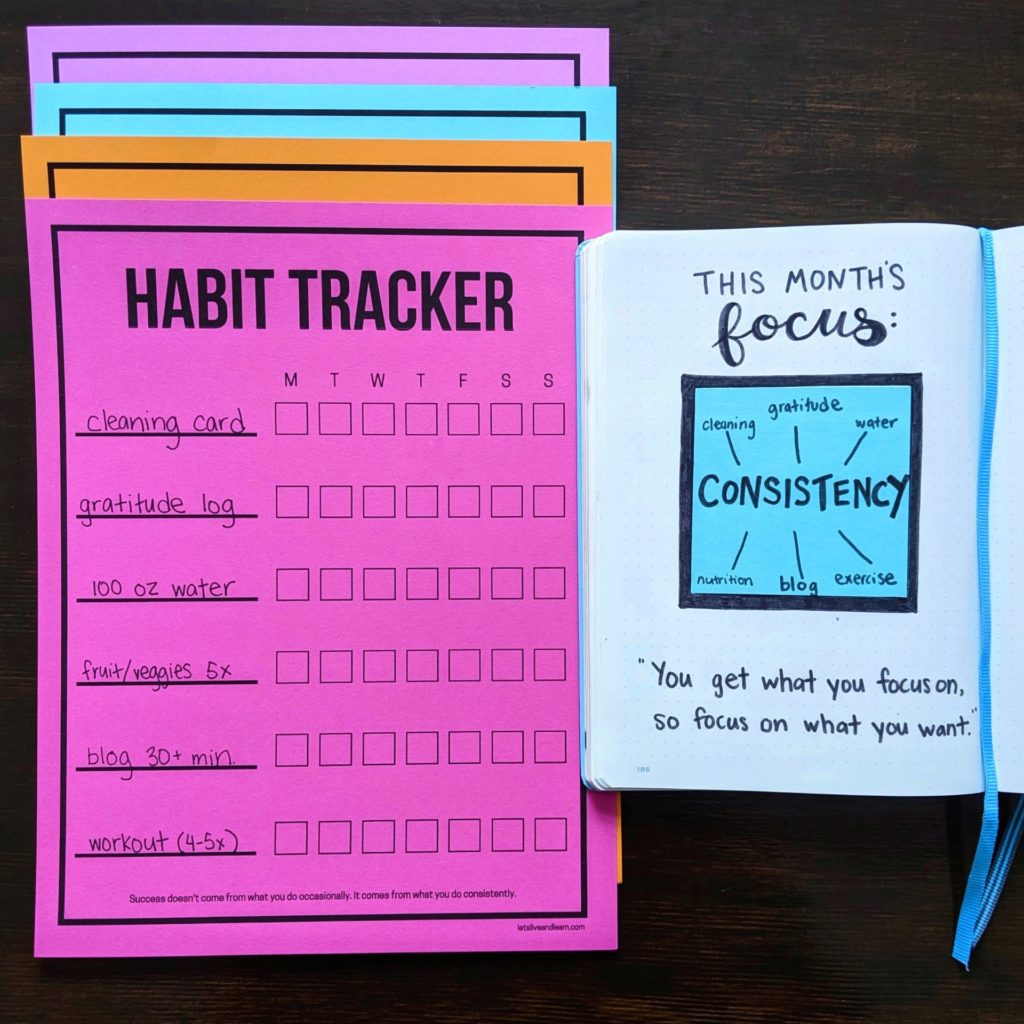 HABIT TRACKER
M T W T F S S
cleaning card
gratitude log
100 oz water
fruit/veggies 5x
blog 30+ min.
workout (4-5x)
Success doesn't come from what you do occasionally. It comes from what you do consistently.
letsliveandlearn.com
THIS MONTH'S
focus:
gratitude
cleaning water
CONSISTENCY
nutrition blog exercise
"You get what you focus on,
so focus on what you want."
186